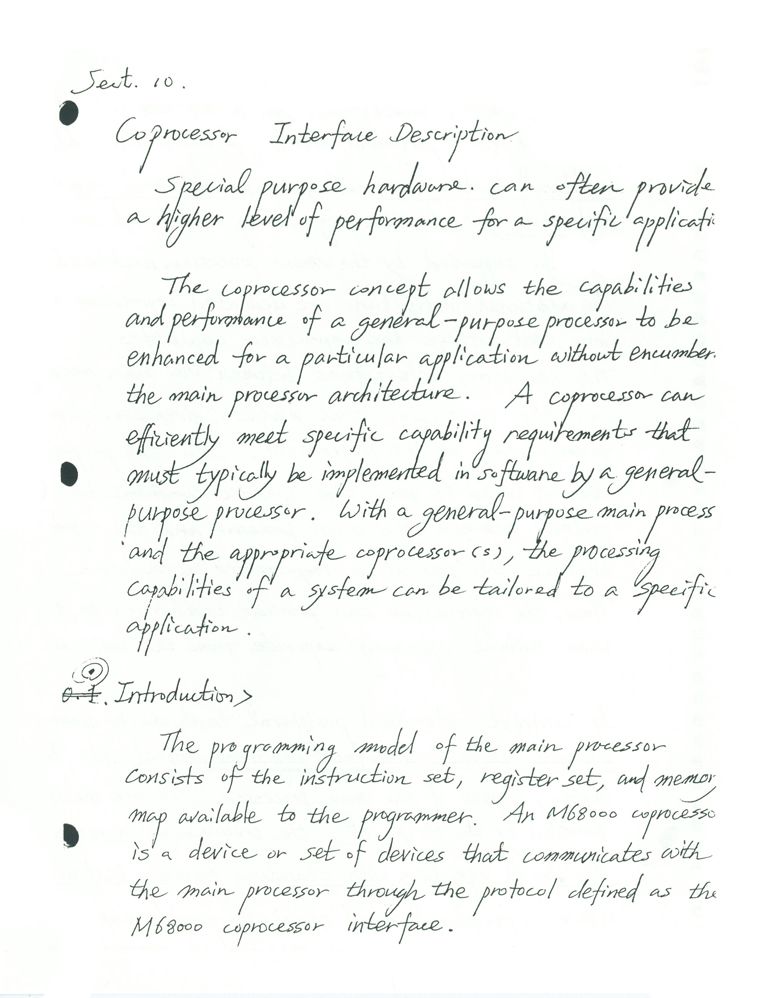 Sect. 10.
Coprocessor Interface Description
Special purpose hardware. can often provide
a higher level of performance for a specific applicati
The coprocessor concept allows the capabilities
and performance of a general-purpose processor to be
enhanced for a particular application without encumber
the main processor architecture. A coprocessor can
efficiently meet specific capability requirements that
must typically be implemented in software by a general-
purpose processor. With a general-purpose main process
and the appropriate coprocessor(s), the processing
capabilities of a system can be tailored to a specific
application.
Introduction>
The programming model of the main processor
consists of the instruction set, register set, and memory
map available to the programmer. An M68000 coprocesso
is a device or set of devices that communicates with
the main processor through the protocol defined as the
M68000 coprocessor interface.